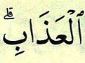 ٱلْعَذَابِ ۗ